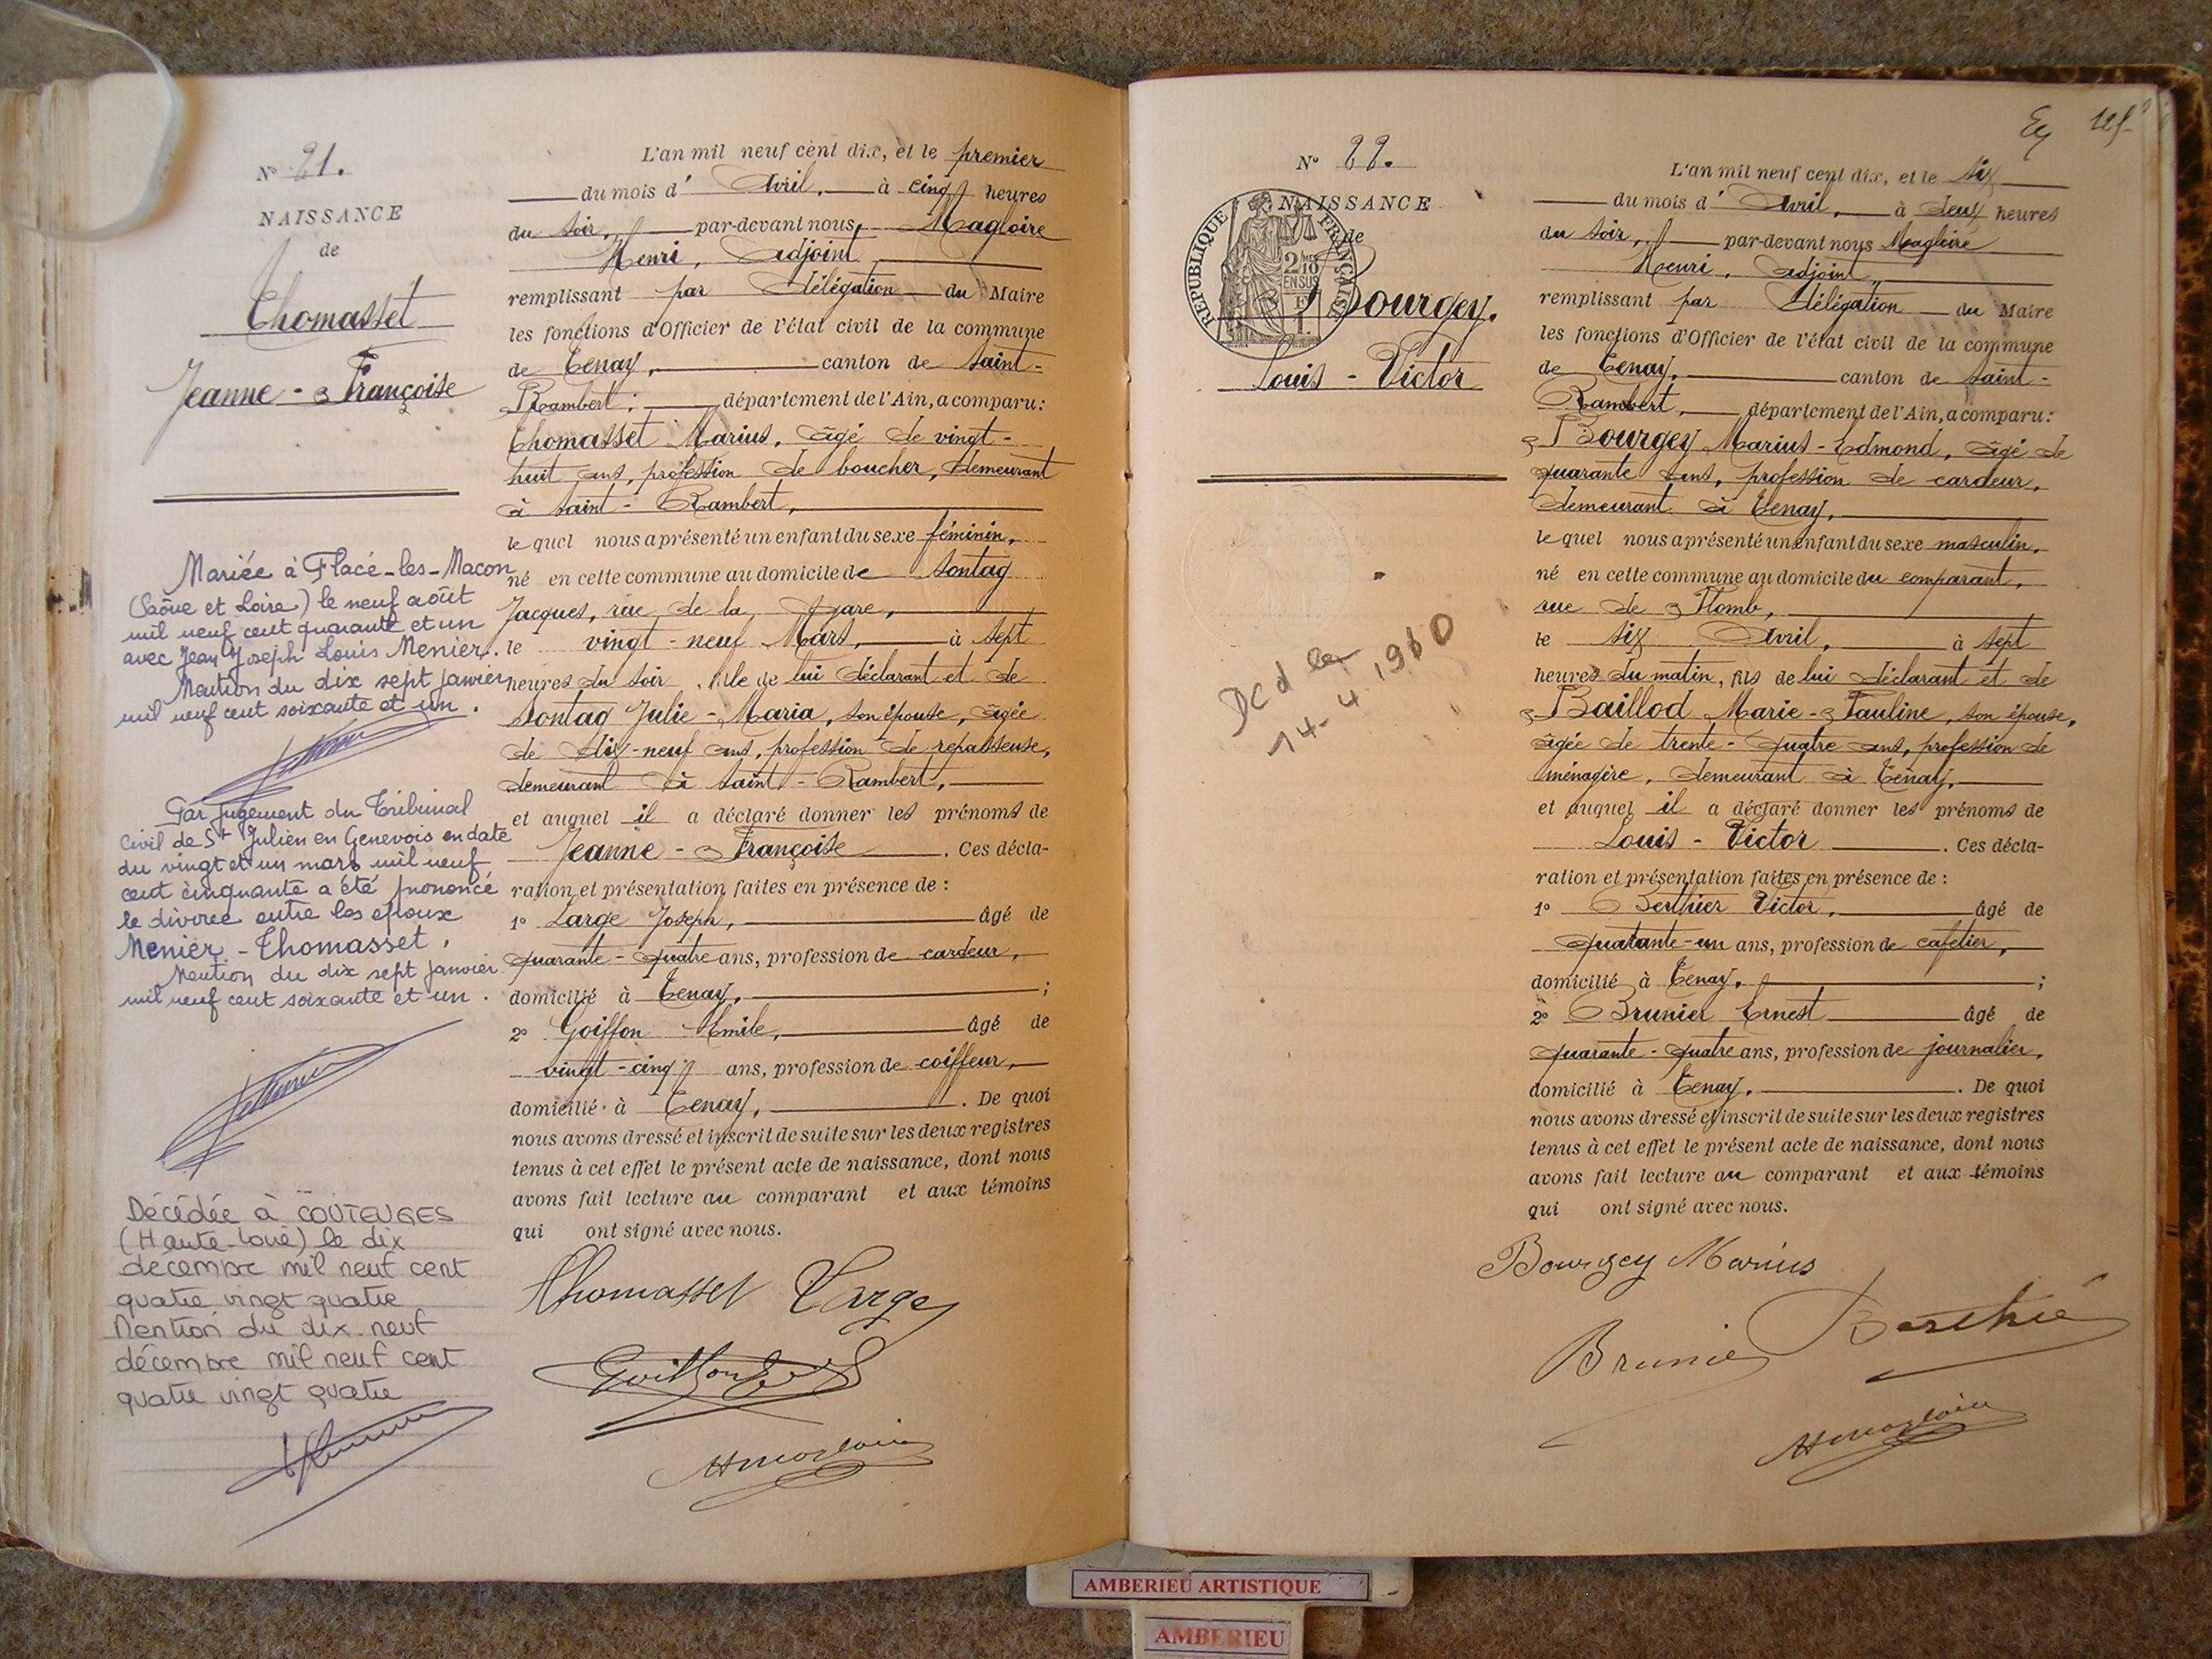 Nº 21.
NAISSANCE
de
Thomasset
Jeanne-Françoise
Mariée à Flacé-les-Macon
(Saône et Loire) le neuf août
mil neuf cent quarante et un
avec Jean Joseph Louis Menier.
Mention du dix sept janvier
mil neuf cent soixante et un.
Par jugement du Tribunal
civil de St Julien en Genevois en date
du vingt et un mars mil neuf
cent cinquante a été prononcé
le divorce entre les époux
Menier-Thomasset.
Mention du dix sept janvier
mil neuf cent soixante et un.
Décédée à COUTEUGES
(Haute-Loire) le dix
décembre mil neuf cent
quatre vingt quatre
Mention du dix neuf
décembre mil neuf cent
quatre vingt quatre
L'an mil neuf cent dix, et le premier
du mois d'Avril, à cinq heures
du soir, par-devant nous, Magloire
Henri, adjoint
remplissant par délégation du Maire
les fonctions d'Officier de l'état civil de la commune
de Tenay, canton de Saint-
Rambert, département de l'Ain, a comparu:
Thomasset Marius, âgé de vingt-
huit ans, profession de boucher, demeurant
à Saint-Rambert,
lequel nous a présenté un enfant du sexe féminin,
né en cette commune au domicile de Sontag
Jacques, rue de la gare,
le vingt-neuf Mars, à sept
heures du soir, fille de lui déclarant et de
Sontag Julie-Maria, son épouse, âgée
de dix-neuf ans, profession de repasseuse,
demeurant à Saint-Rambert,
et auquel il a déclaré donner les prénoms de
Jeanne-Françoise. Ces décla-
ration et présentation faites en présence de:
1º Large Joseph, âgé de
quarante-quatre ans, profession de cardeur,
domicilié à Tenay,;
2º Goiffon Emile, âgé de
vingt-cinq ans, profession de coiffeur,
domicilié à Tenay,. De quoi
nous avons dressé et inscrit de suite sur les deux registres
tenus à cet effet le présent acte de naissance, dont nous
avons fait lecture au comparant et aux témoins
qui ont signé avec nous.
Thomasset Large
Goiffon
HMagloire
125
Nº 22.
NAISSANCE
de
REPUBLIQUE FRANÇAISE
2/10
EN SUS
Bourgey.
Louis-Victor
Dcd le
14-4.1960
L'an mil neuf cent dix, et le six
du mois d'Avril, à deux heures
du soir, par-devant nous Magloire
Henri, adjoint
remplissant par délégation du Maire
les fonctions d'Officier de l'état civil de la commune
de Tenay, canton de Saint-
Rambert, département de l'Ain, a comparu:
Bourgey Marius-Edmond, âgé de
quarante ans, profession de cardeur,
demeurant à Tenay,
lequel nous a présenté un enfant du sexe masculin,
né en cette commune au domicile du comparant,
rue de Plomb,
le six Avril, à sept
heures du matin, fils de lui déclarant et de
Baillod Marie-Pauline, son épouse,
âgée de trente-quatre ans, profession de
ménagère, demeurant à Tenay,
et auquel il a déclaré donner les prénoms de
Louis-Victor. Ces décla-
ration et présentation faites en présence de:
1º Berthier Victor, âgé de
quarante-un ans, profession de cafetier,
domicilié à Tenay,;
2º Brunier Ernest âgé de
quarante-quatre ans, profession de journalier,
domicilié à Tenay,. De quoi
nous avons dressé et inscrit de suite sur les deux registres
tenus à cet effet le présent acte de naissance, dont nous
avons fait lecture au comparant et aux témoins
qui ont signé avec nous.
Bourgey Marius
Brunier Berthié
HMagloire
AMBERIEU ARTISTIQUE
AMBERIEU